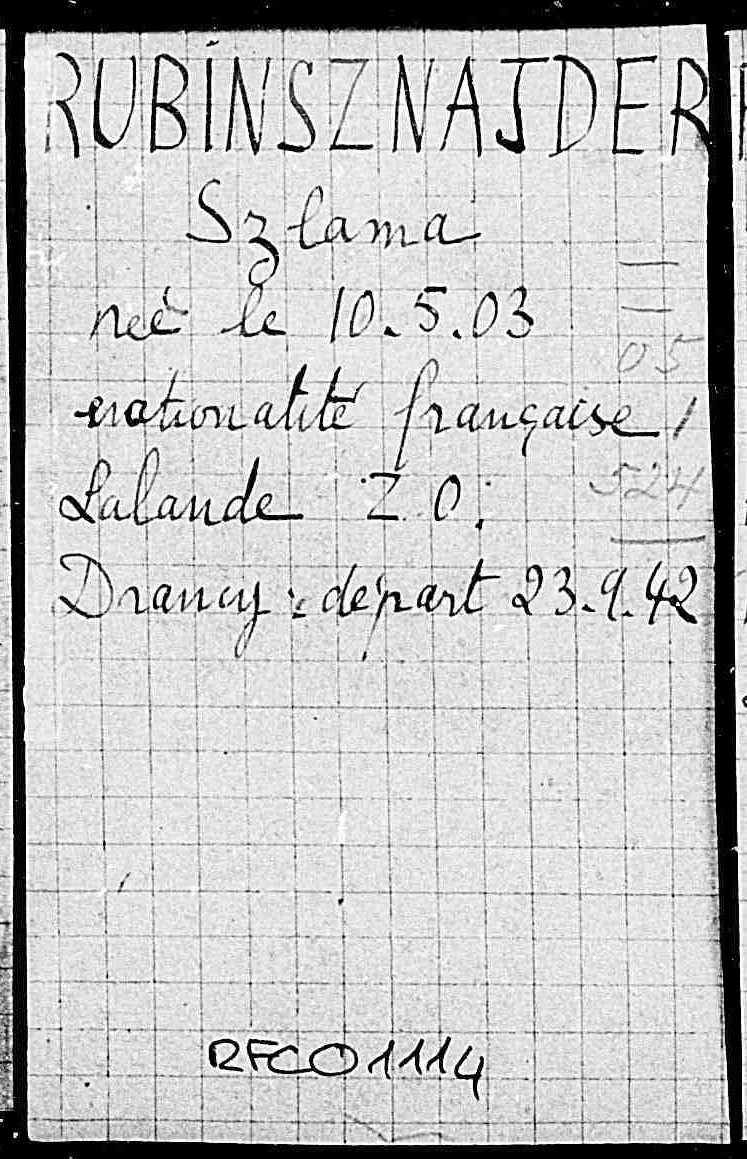 RUBINSZNAJDER
Szlama
neé le 10.5.03
—
—
05
nationalité française 1
Lalande Z.O. 524
Drancy : départ 23.9.42
RFCO1114